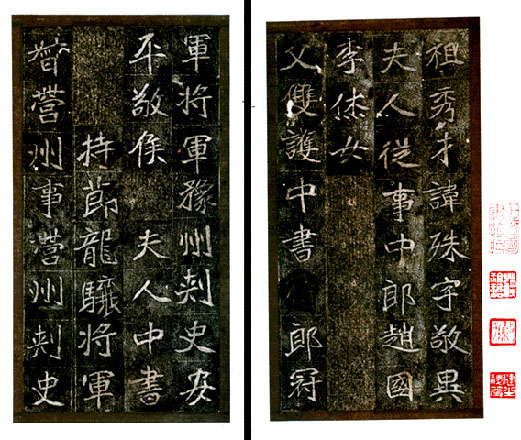 祖秀才諱殊字敬異
夫人從事中郎趙國
李休女
父雙護中書郎冠
軍將軍豫州刺史安
平敬侯　夫人中書
持節龍驤將軍
督營州事營州刺史